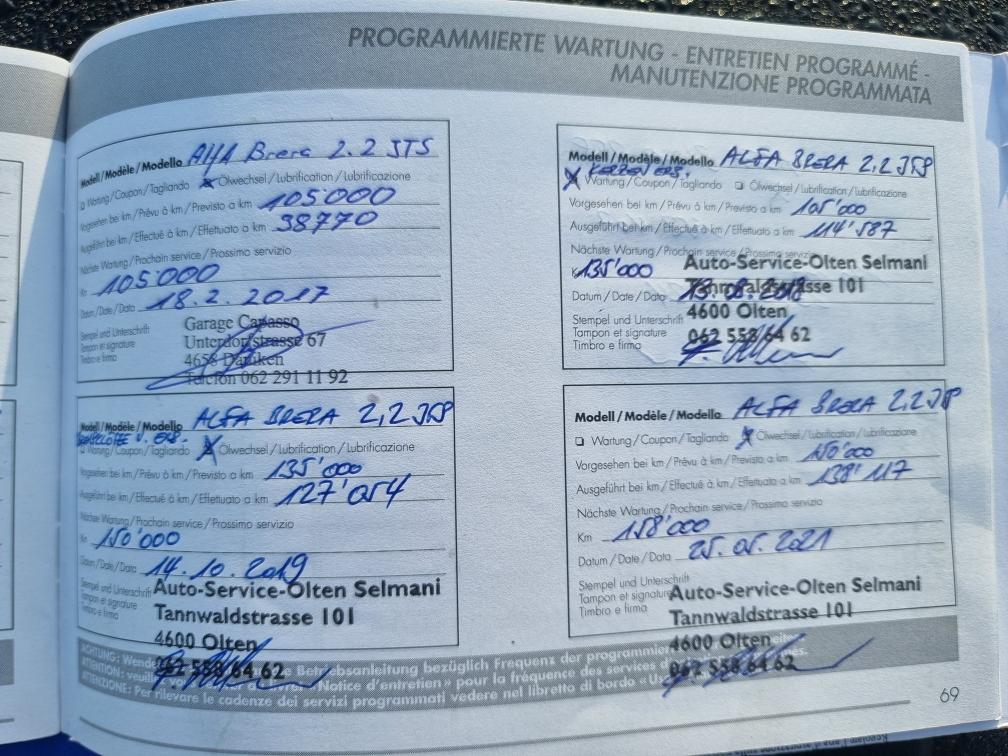 PROGRAMMIERTE WARTUNG - ENTRETIEN PROGRAMMÉ -
MANUTENZIONE PROGRAMMATA
Modell / Modèle / Modello Alfa Brera 2.2 JTS
Wartung / Coupon / Tagliando Ölwechsel / Lubrification / Lubrificazione
Vorgesehen bei km / Prévu à km / Previsto a km 105000
Ausgeführt bei km / Effectué à km / Effettuato a km 38770
Nächste Wartung / Prochain service / Prossimo servizio
Km 105000
Datum / Date / Data 18.2.2017
Stempel und Unterschrift
Tampon et signature
Timbro e firma
Garage Capasso
Unterdorfstrasse 67
4658 Däniken
Telefon 062 291 11 92
Modell / Modèle / Modello ALFA BRERA 2,2 JTS
KERZEN ERS.
Wartung / Coupon / Tagliando Ölwechsel / Lubrification / Lubrificazione
Vorgesehen bei km / Prévu à km / Previsto a km 105'000
Ausgeführt bei km / Effectué à km / Effettuato a km 114'587
Nächste Wartung / Prochain service / Prossimo servizio
Km 135'000
Datum / Date / Data
Stempel und Unterschrift
Tampon et signature
Timbro e firma
Auto-Service-Olten Selmani
Tannwaldstrasse 101
4600 Olten
062 558 64 62
Modell / Modèle / Modello ALFA BRERA 2,2 JTS
V. ERS.
Wartung / Coupon / Tagliando Ölwechsel / Lubrification / Lubrificazione
Vorgesehen bei km / Prévu à km / Previsto a km 135'000
Ausgeführt bei km / Effectué à km / Effettuato a km 127'054
Nächste Wartung / Prochain service / Prossimo servizio
Km 150'000
Datum / Date / Data 14.10.2019
Stempel und Unterschrift
Tampon et signature
Timbro e firma
Auto-Service-Olten Selmani
Tannwaldstrasse 101
4600 Olten
062 558 64 62
Modell / Modèle / Modello ALFA BRERA 2,2 JTS
Wartung / Coupon / Tagliando Ölwechsel / Lubrification / Lubrificazione
Vorgesehen bei km / Prévu à km / Previsto a km 150'000
Ausgeführt bei km / Effectué à km / Effettuato a km 138'117
Nächste Wartung / Prochain service / Prossimo servizio
Km 158'000
Datum / Date / Data 25.05.2021
Stempel und Unterschrift
Tampon et signature
Timbro e firma
Auto-Service-Olten Selmani
Tannwaldstrasse 101
4600 Olten
062 558 64 62
ACHTUNG: Betriebsanleitung bezüglich Frequenz der
ATTENTION: «Notice d'entretien» pour la fréquence des services
ATTENZIONE: Per rilevare le cadenze dei servizi programmati vedere nel libretto di bordo
69